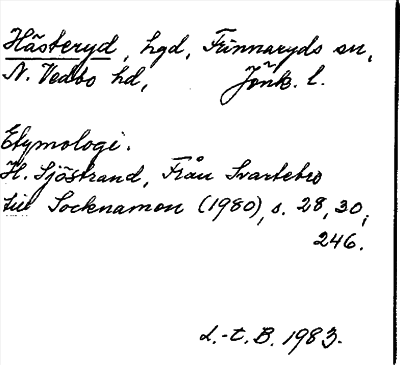 Hästeryd, hgd, Finnaryds sn,
N. Vedbo hd, Jönk. l.
Etymologi.
H. Sjöstrand, Från Svartebro
till Socknamon (1980), s. 28, 30,
246.
L.-t. B. 1983.